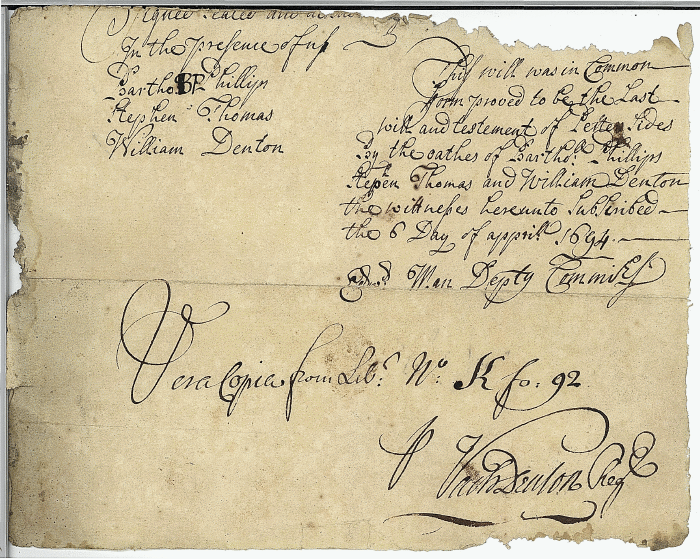 Signed Sealed and
In the presence of us
Bartho: BP Phillips
Stephen Thomas
William Denton
This will was in Common
form proved to be the Last
will and testement of Peter Sides
By the oathes of Bartho: Phillips
Stephen Thomas and William Denton
the wittnesses hereunto Subscribed
the 6 Day of apprill 1694.
Edwd. Man Depty Commisry
Vera Copia from Libr: No: K fo: 92
P Vach Denton Regr